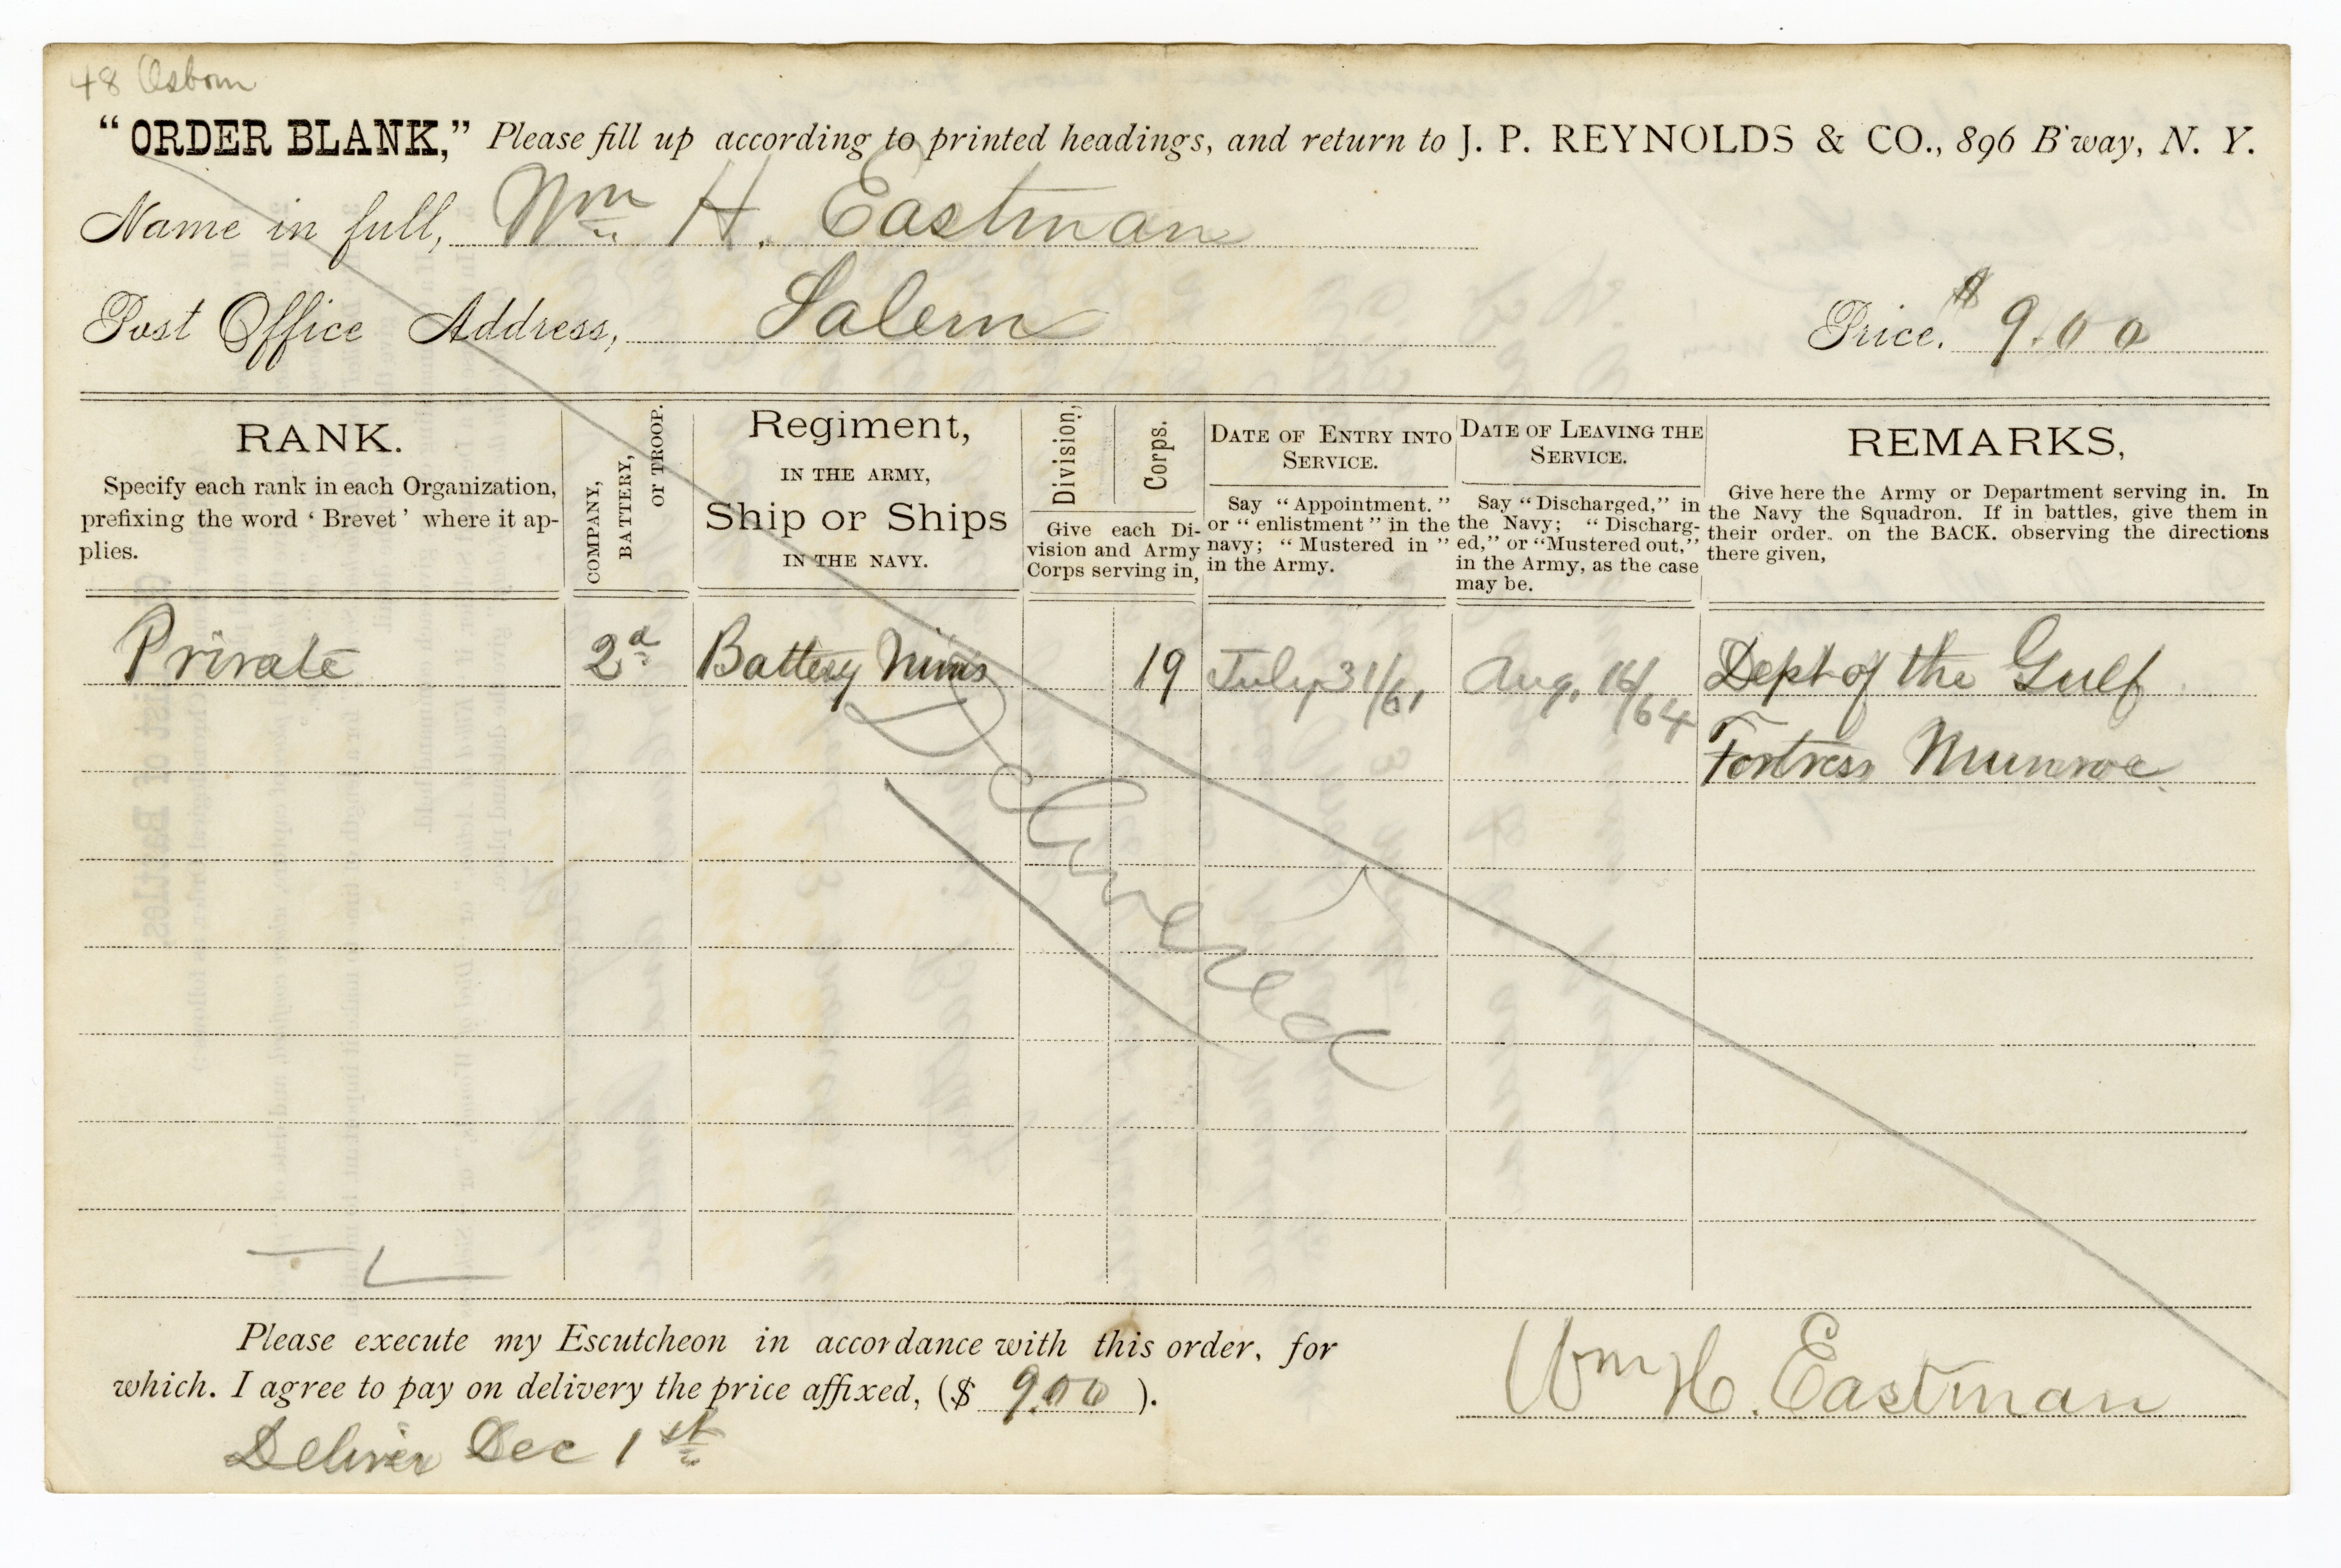 48 Osborn
"ORDER BLANK," Please fill up according to printed headings, and return to J. P. REYNOLDS & CO., 896 B'way, N. Y.
Name in full, Wm H. Eastman
Post Office Address, Salem Price, $ 9.00
RANK.
Specify each rank in each Organization,
prefixing the word 'Brevet' where it ap-
plies.
COMPANY,
BATTERY,
or TROOP.
Regiment,
IN THE ARMY,
Ship or Ships
IN THE NAVY.
Division,
Corps.
Give each Di-
vision and Army
Corps serving in,
DATE OF ENTRY INTO
SERVICE.
Say "Appointment."
or "enlistment" in the
navy; "Mustered in"
in the Army.
DATE OF LEAVING THE
SERVICE.
Say "Discharged," in
the Navy; "Discharg-
ed," or "Mustered out,"
in the Army, as the case
may be.
REMARKS,
Give here the Army or Department serving in. In
the Navy the Squadron. If in battles, give them in
their order. on the BACK. observing the directions
there given,
Private 2d Battery Nims 19 July 31/61 Aug. 16/64 Dept of the Gulf
Fortress Munroe
Delivered
Please execute my Escutcheon in accordance with this order, for
which. I agree to pay on delivery the price affixed, ($ 9.00 ).
Wm H. Eastman
Deliver Dec 1st